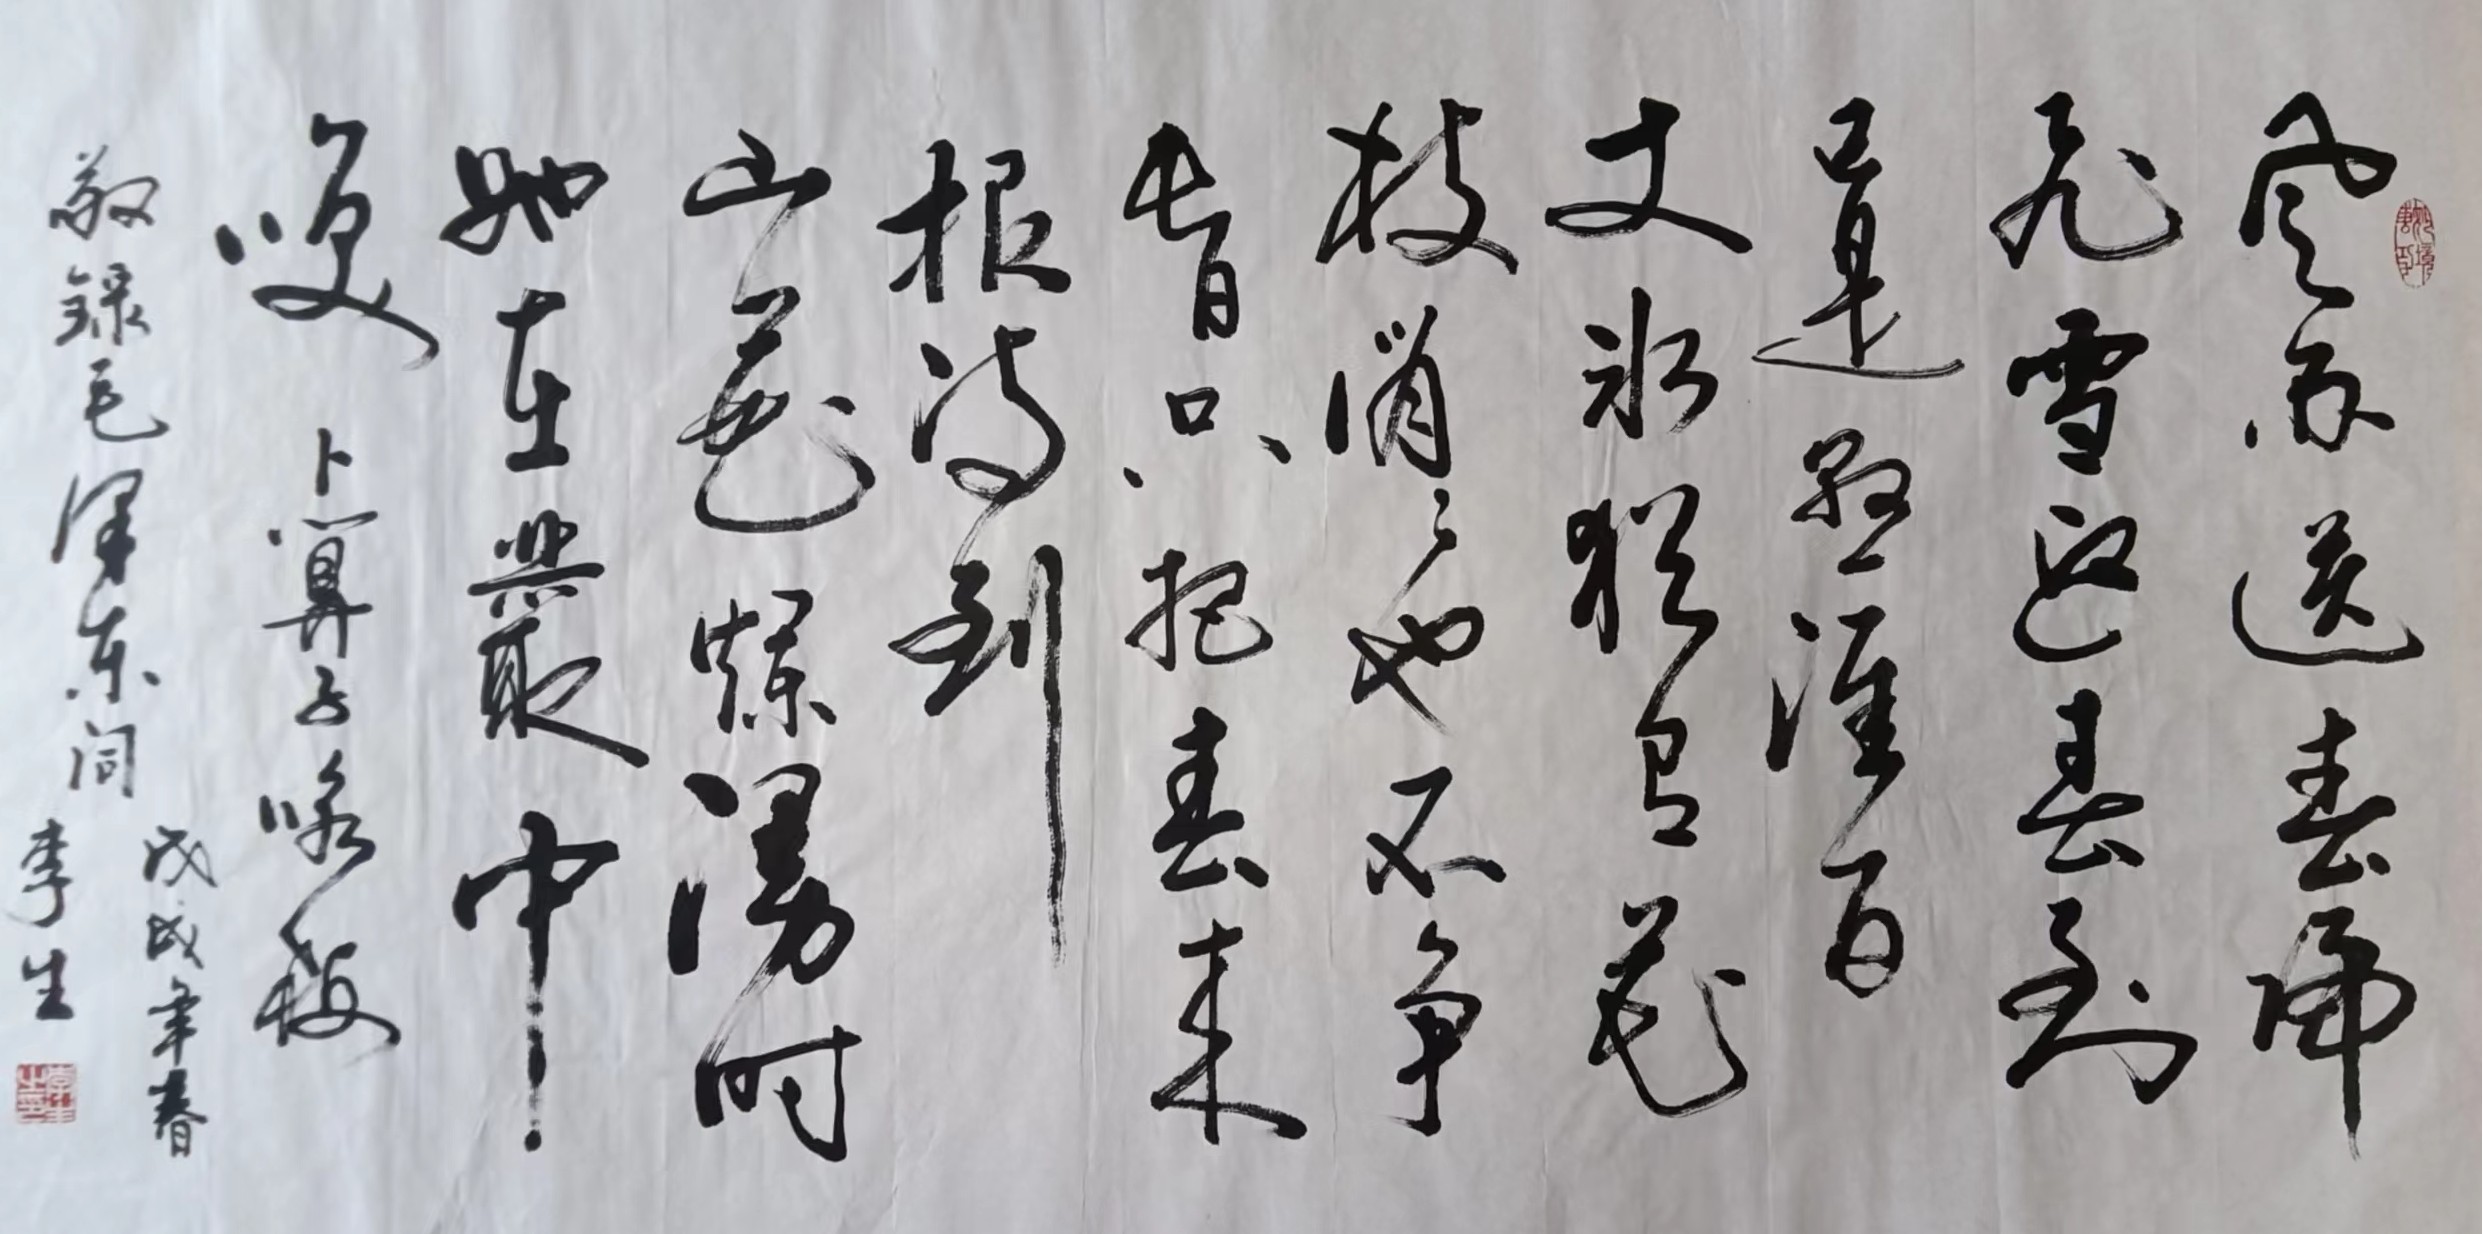 风雨送春归
飞雪迎春到
已是悬涯百
丈冰犹有花
枝俏〻也不争
春只把春来
报待到
山花爛漫时
她在叢中
笑 卜算子咏梅
敬録毛泽东词
戊戌年春
李生